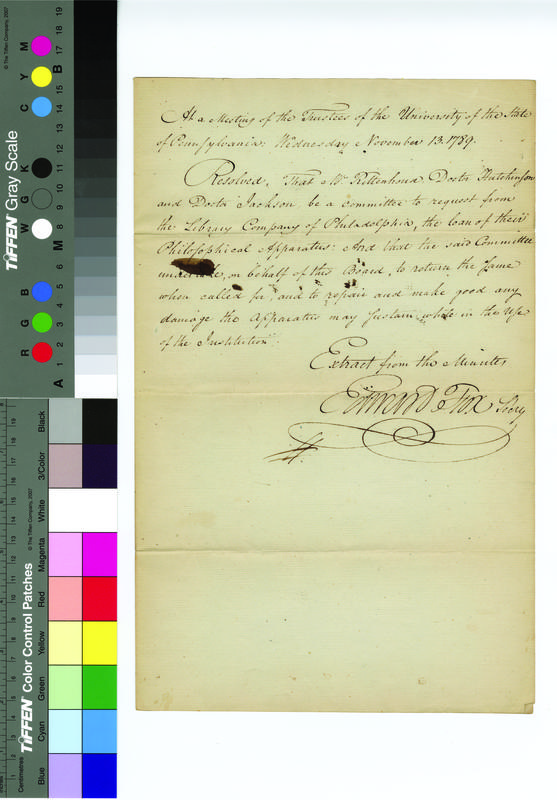 At a Meeting of the Trustees of the University of the State
of Pennsylvania. Wednesday November 13. 1789.
Resolved, That Mr. Rittenhouse Doctr Hutchinson
and Doctr Jackson, be a Committee to request from
the Library Company of Philadelphia, the loan of their
Philosophical Apparatus: And that the said Committee
undertake, on behalf of this Board, to return the same
when called for, and to repair and make good any
damage the Apparatus may sustain while in the Use
of the Institution.
Extract from the Minutes
Edward Fox Secry
TIFFEN Gray Scale
© The Tiffen Company, 2007
R G B W G K C Y M
A 1 2 3 4 5 6 M 8 9 10 11 12 13 14 15 B 17 18 19
TIFFEN Color Control Patches
© The Tiffen Company, 2007
Centimetres
Blue Cyan Green Yellow Red Magenta White 3/Color Black